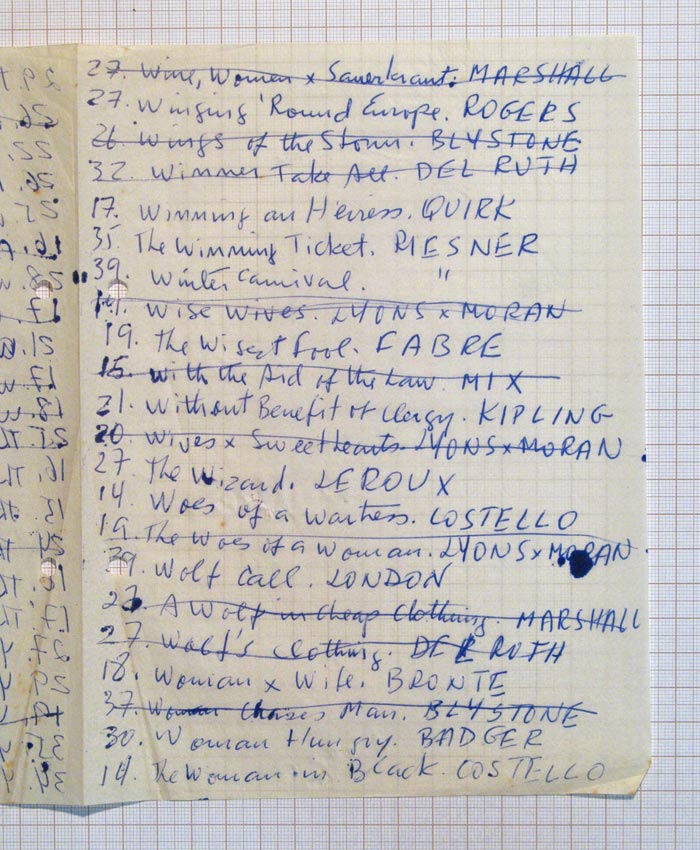 27. Wine, Women x Sauerkraut: MARSHALL
27. Winging 'Round Europe. ROGERS
26. Wings of the Storm. BLYSTONE
32. Winner Take All. DEL RUTH
17. Winning an Heiress. QUIRK
35. The Winning Ticket. RIESNER
39. Winter Carnival. "
Wise Wives. LYONS x MORAN
19. The Wisest Fool. FABRE
15. With the Aid of the Law. MIX
21. Without Benefit of Clergy. KIPLING
20. Wives x Sweethearts. LYONS x MORAN
27. The Wizard. LEROUX
14. Woes of a Waitress. COSTELLO
19. The Woes of a Woman. LYONS x MORAN
39. Wolf Call. LONDON
A Wolf in Cheap Clothing. MARSHALL
27. Wolf's Clothing. DEL RUTH
18. Woman x Wife. BRONTE
37. Woman Chases Man. BLYSTONE
30. Woman Hungry. BADGER
14. The Woman in Black. COSTELLO